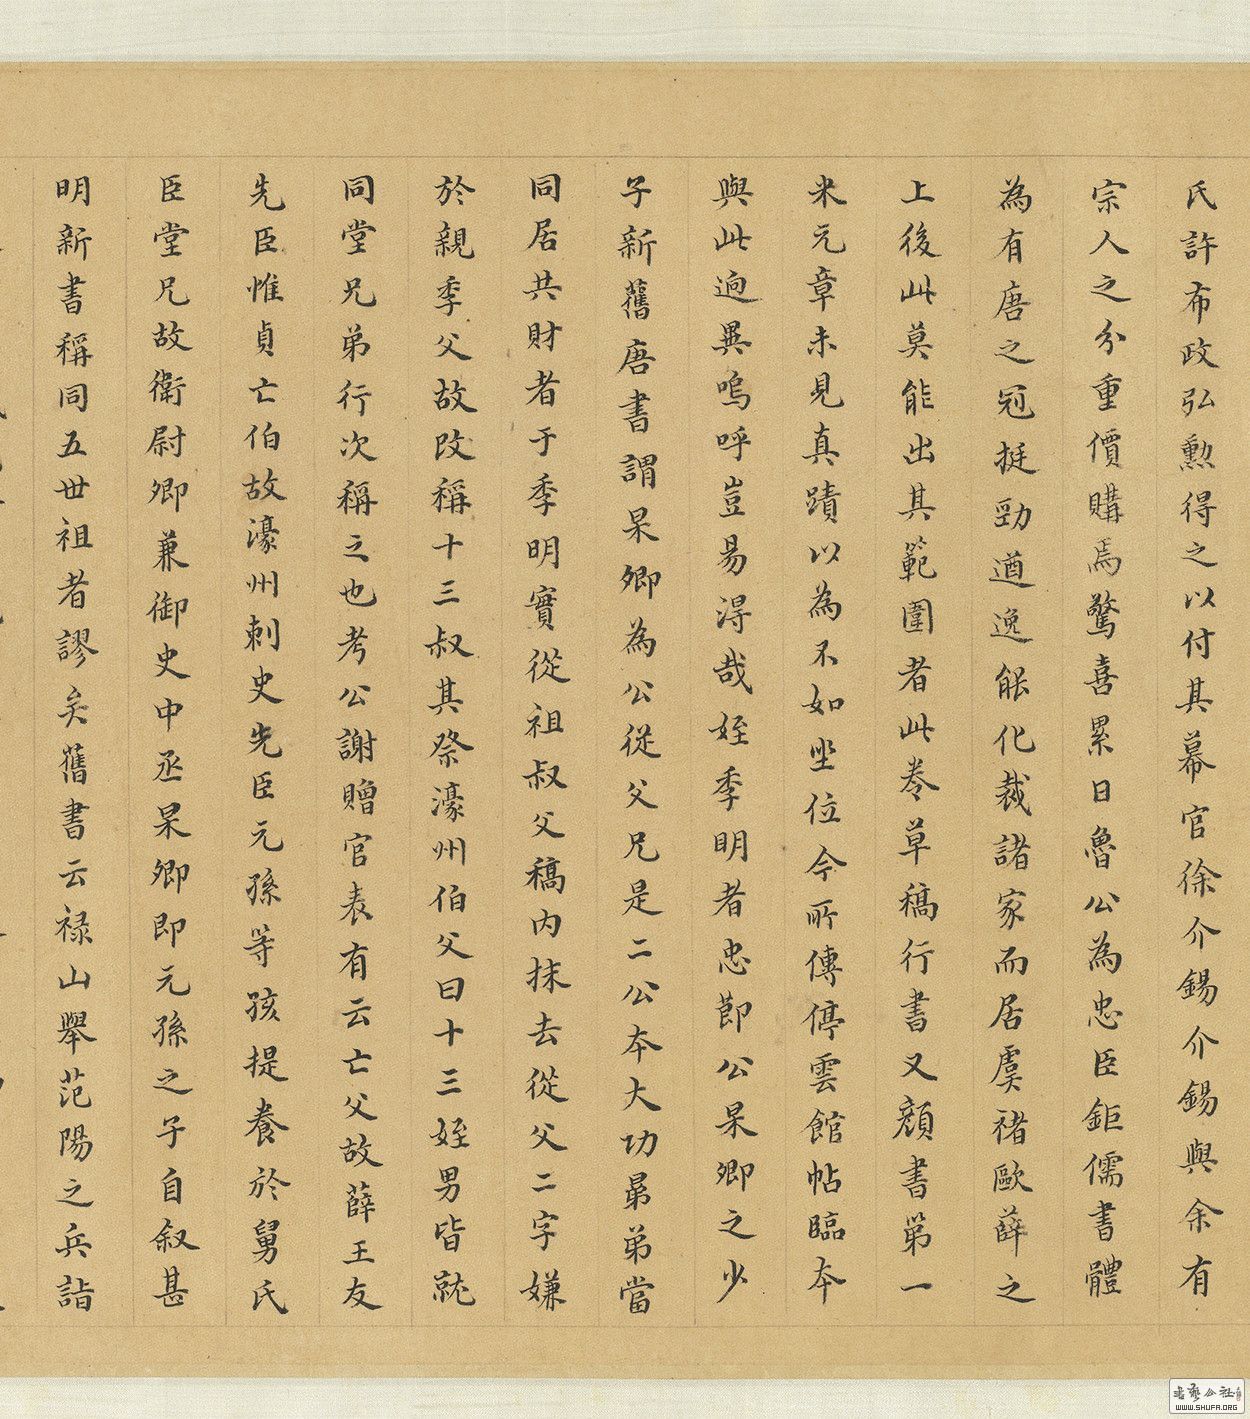 氏許布政弘勲得之以付其幕官徐介錫介錫與余有
宗人之分重價購焉驚喜累日魯公為忠臣鉅儒書體
為有唐之冠挺勁遒逸能化裁諸家而居虞褚歐薛之
上後此莫能出其範圍者此卷草稿行書又顏書第一
米元章未見真蹟以為不如坐位今所傳停雲館帖臨本
與此迥異嗚呼豈易得哉姪季明者忠節公杲卿之少
子新舊唐書謂杲卿為公從父兄是二公本大功昴弟當
同居共財者于季明實從祖叔父稿內抹去從父二字嫌
於親季父故改稱十三叔其祭濠州伯父曰十三姪男皆就
同堂兄弟行次稱之也考公謝贈官表有云亡父故薛王友
先臣惟貞亡伯故濠州刺史先臣元孫等孩提養於舅氏
臣堂兄故衛尉卿兼御史中丞杲卿即元孫之子自叙甚
明新書稱同五世祖者謬矣舊書云祿山舉范陽之兵詣
書藝公社
WWW.SHUFA.ORG